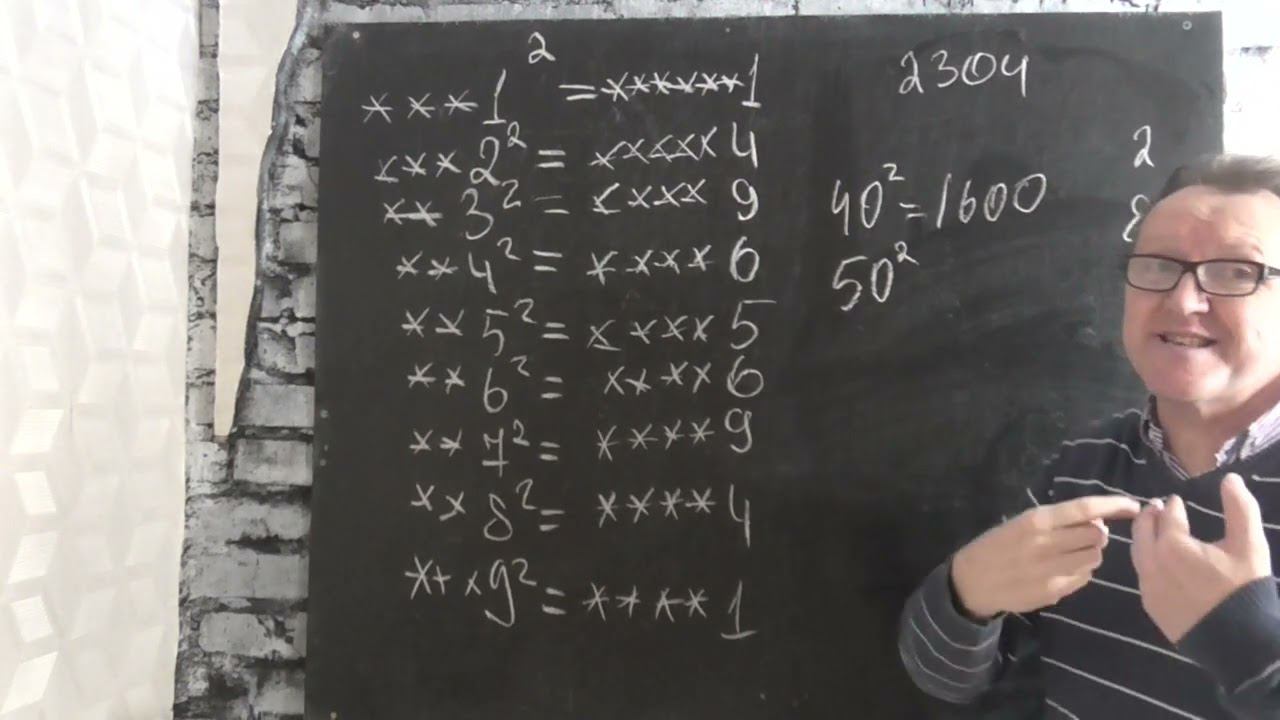 ***1² = ******1
***2² = *****4
**3² = ****9
**4² = ****6
**5² = ****5
**6² = ****6
**7² = ****9
**8² = ****4
***9² = ****1
2304
40² = 1600
50²
2